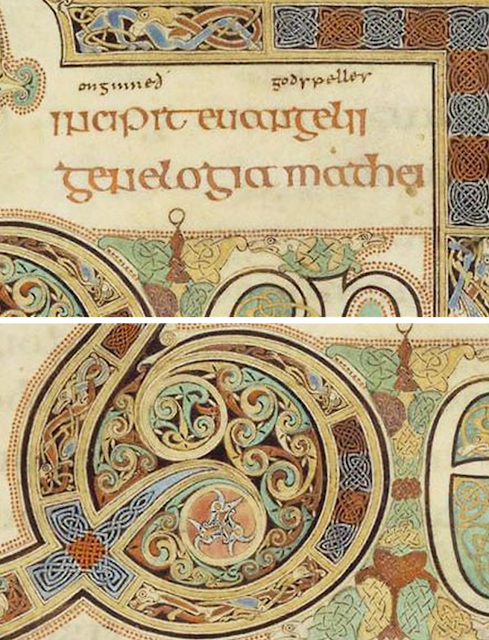 onginneð godspelles
incipit euangelii
genelogia mathei